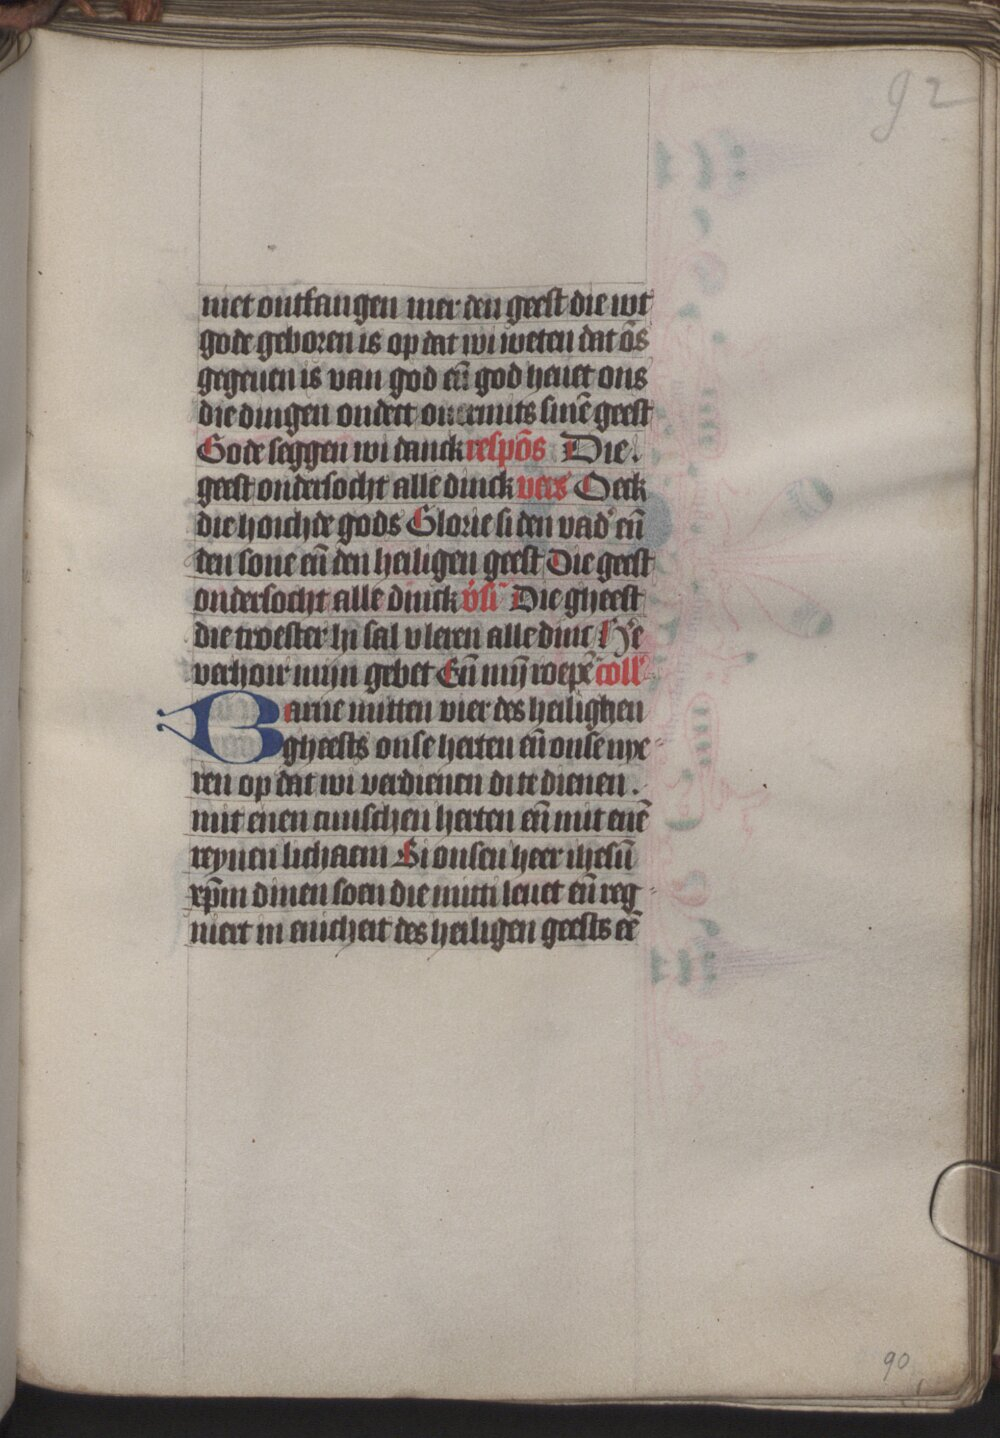 92
niet ontfangen mer den geest die wt
gode geboren is op dat wi weten dat ōs
gegeuen is van god en̄ god heuet ons
die dingen ondect ouermits sinē geest
Gode seggen wi danck respōs Die
geest ondersocht alle dinck vers Oeck
die hoichde gods Glorie si den vad' en̄
den sone en̄ den heiligen geest Die geest
ondersocht alle dinck v̄si Die gheest
die troester hi sal vleren alle dinc He
verhoir mijn gebet En̄ mijn̄ roepē coll'
Barne mitten vier des heilighen
gheests onse herten en̄ onse nye
ren op dat wi verdienen di te dienen.
mit enen cuuschen herten en̄ mit enē
reynen lichaem Bi onsen heer ihesū
xp̄m dinen soen die mitti leuet en̄ reg
niert in enicheit des heiligen geests eē
90